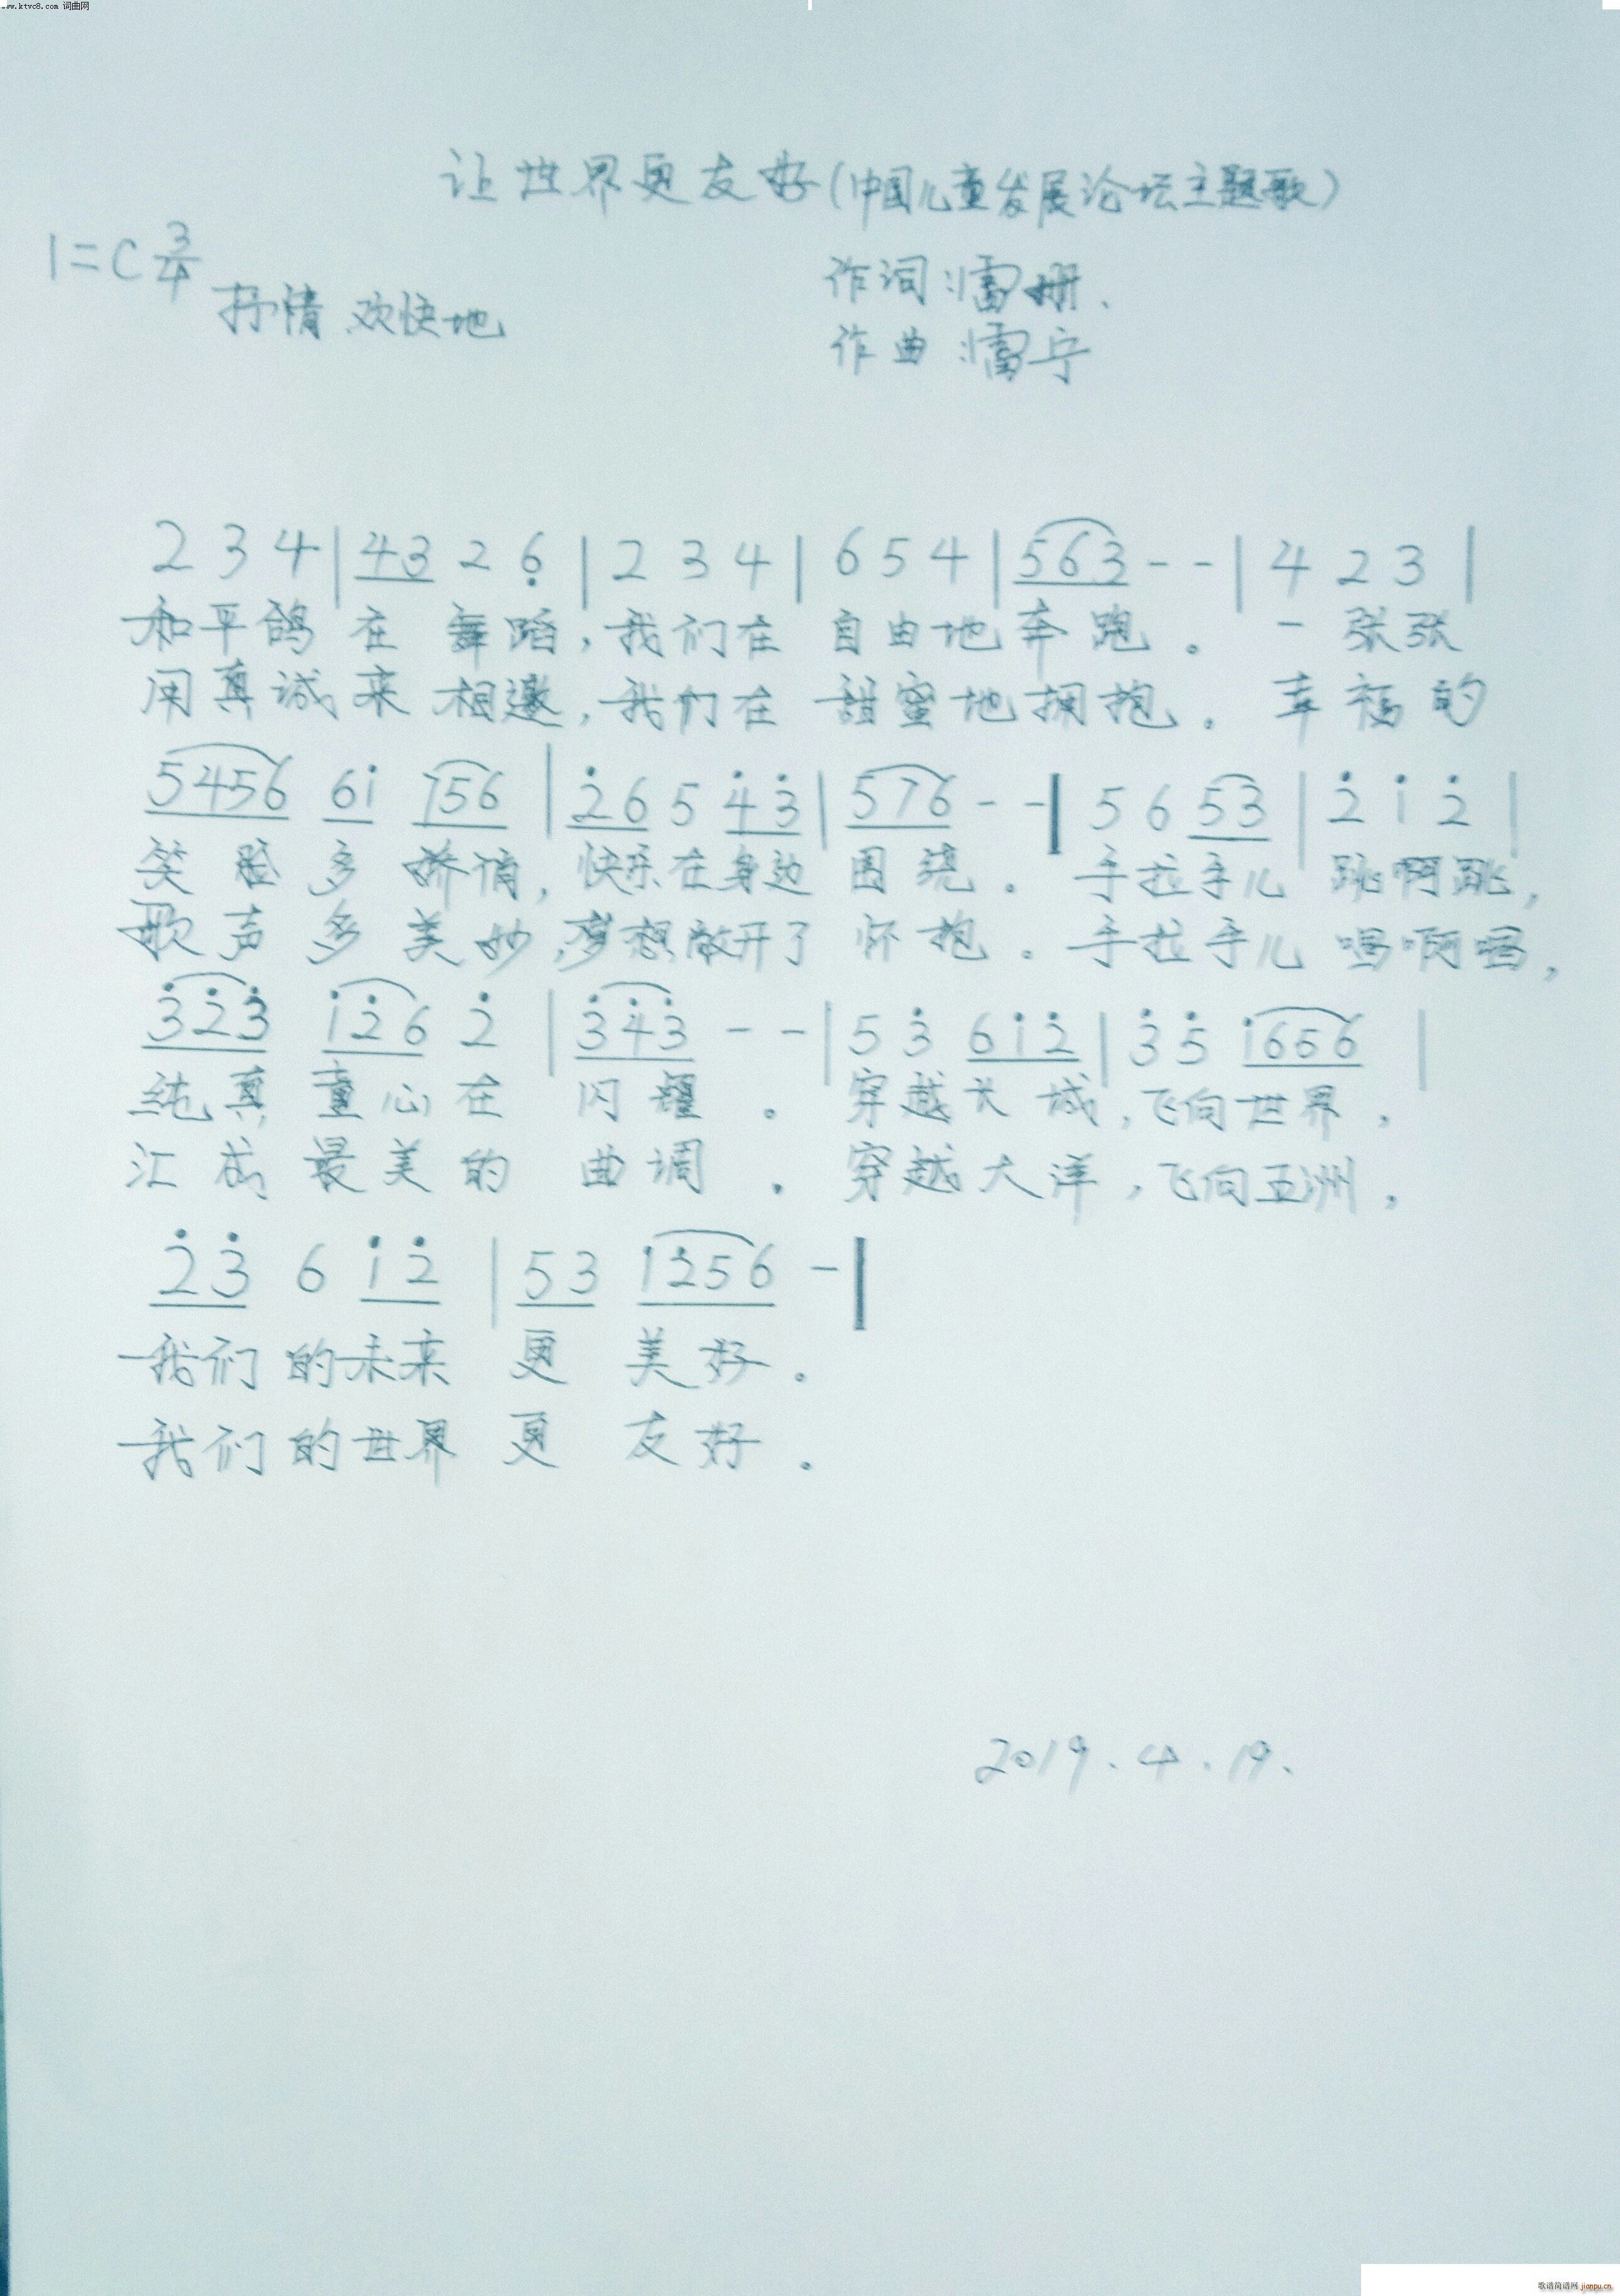 www.ktvc8.com 词曲网
让世界更友好(中国儿童发展论坛主题歌)
1=C 3/4
抒情、欢快地
作词:雷姗、
作曲:雷宁
2 3 4 | 4 3 2 6̣ | 2 3 4 | 6 5 4 | 5 6 3 - - | 4 2 3 |
和平鸽在舞蹈,我们在自由地奔跑。一张张
用真诚来相邀,我们在甜蜜地拥抱。幸福的
5 4 5 6 6 i 7 5 6 | 2̇ 6 5 4̇ 3̇ | 5 7 6 - - | 5 6 5 3 | 2̇ i 2̇ |
笑脸多娇俏,快乐在身边围绕。手拉手儿跳啊跳,
歌声多美妙,梦想敞开了怀抱。手拉手儿唱啊唱,
3̇ 2̇ 3̇ i 2̇ 6 2̇ | 3̇ 4̇ 3̇ - - | 5 3̇ 6 i 2̇ | 3̇ 5̇ i 6 5 6 |
纯真童心在闪耀。穿越长城,飞向世界,
汇成最美的曲调。穿越大洋,飞向五洲,
2̇ 3̇ 6 i 2̇ | 5 3 i 2̇ 5 6 - |
我们的未来更美好。
我们的世界更友好。
2019.4.19.
歌谱简谱网 jianpu.cn